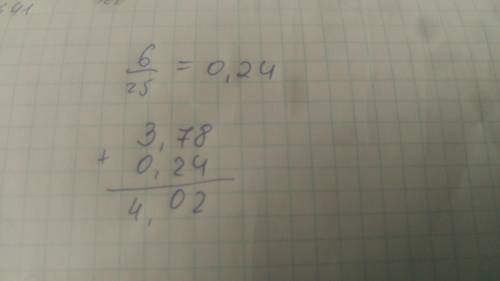 6/25 = 0,24
3,78
+ 0,24
4,02